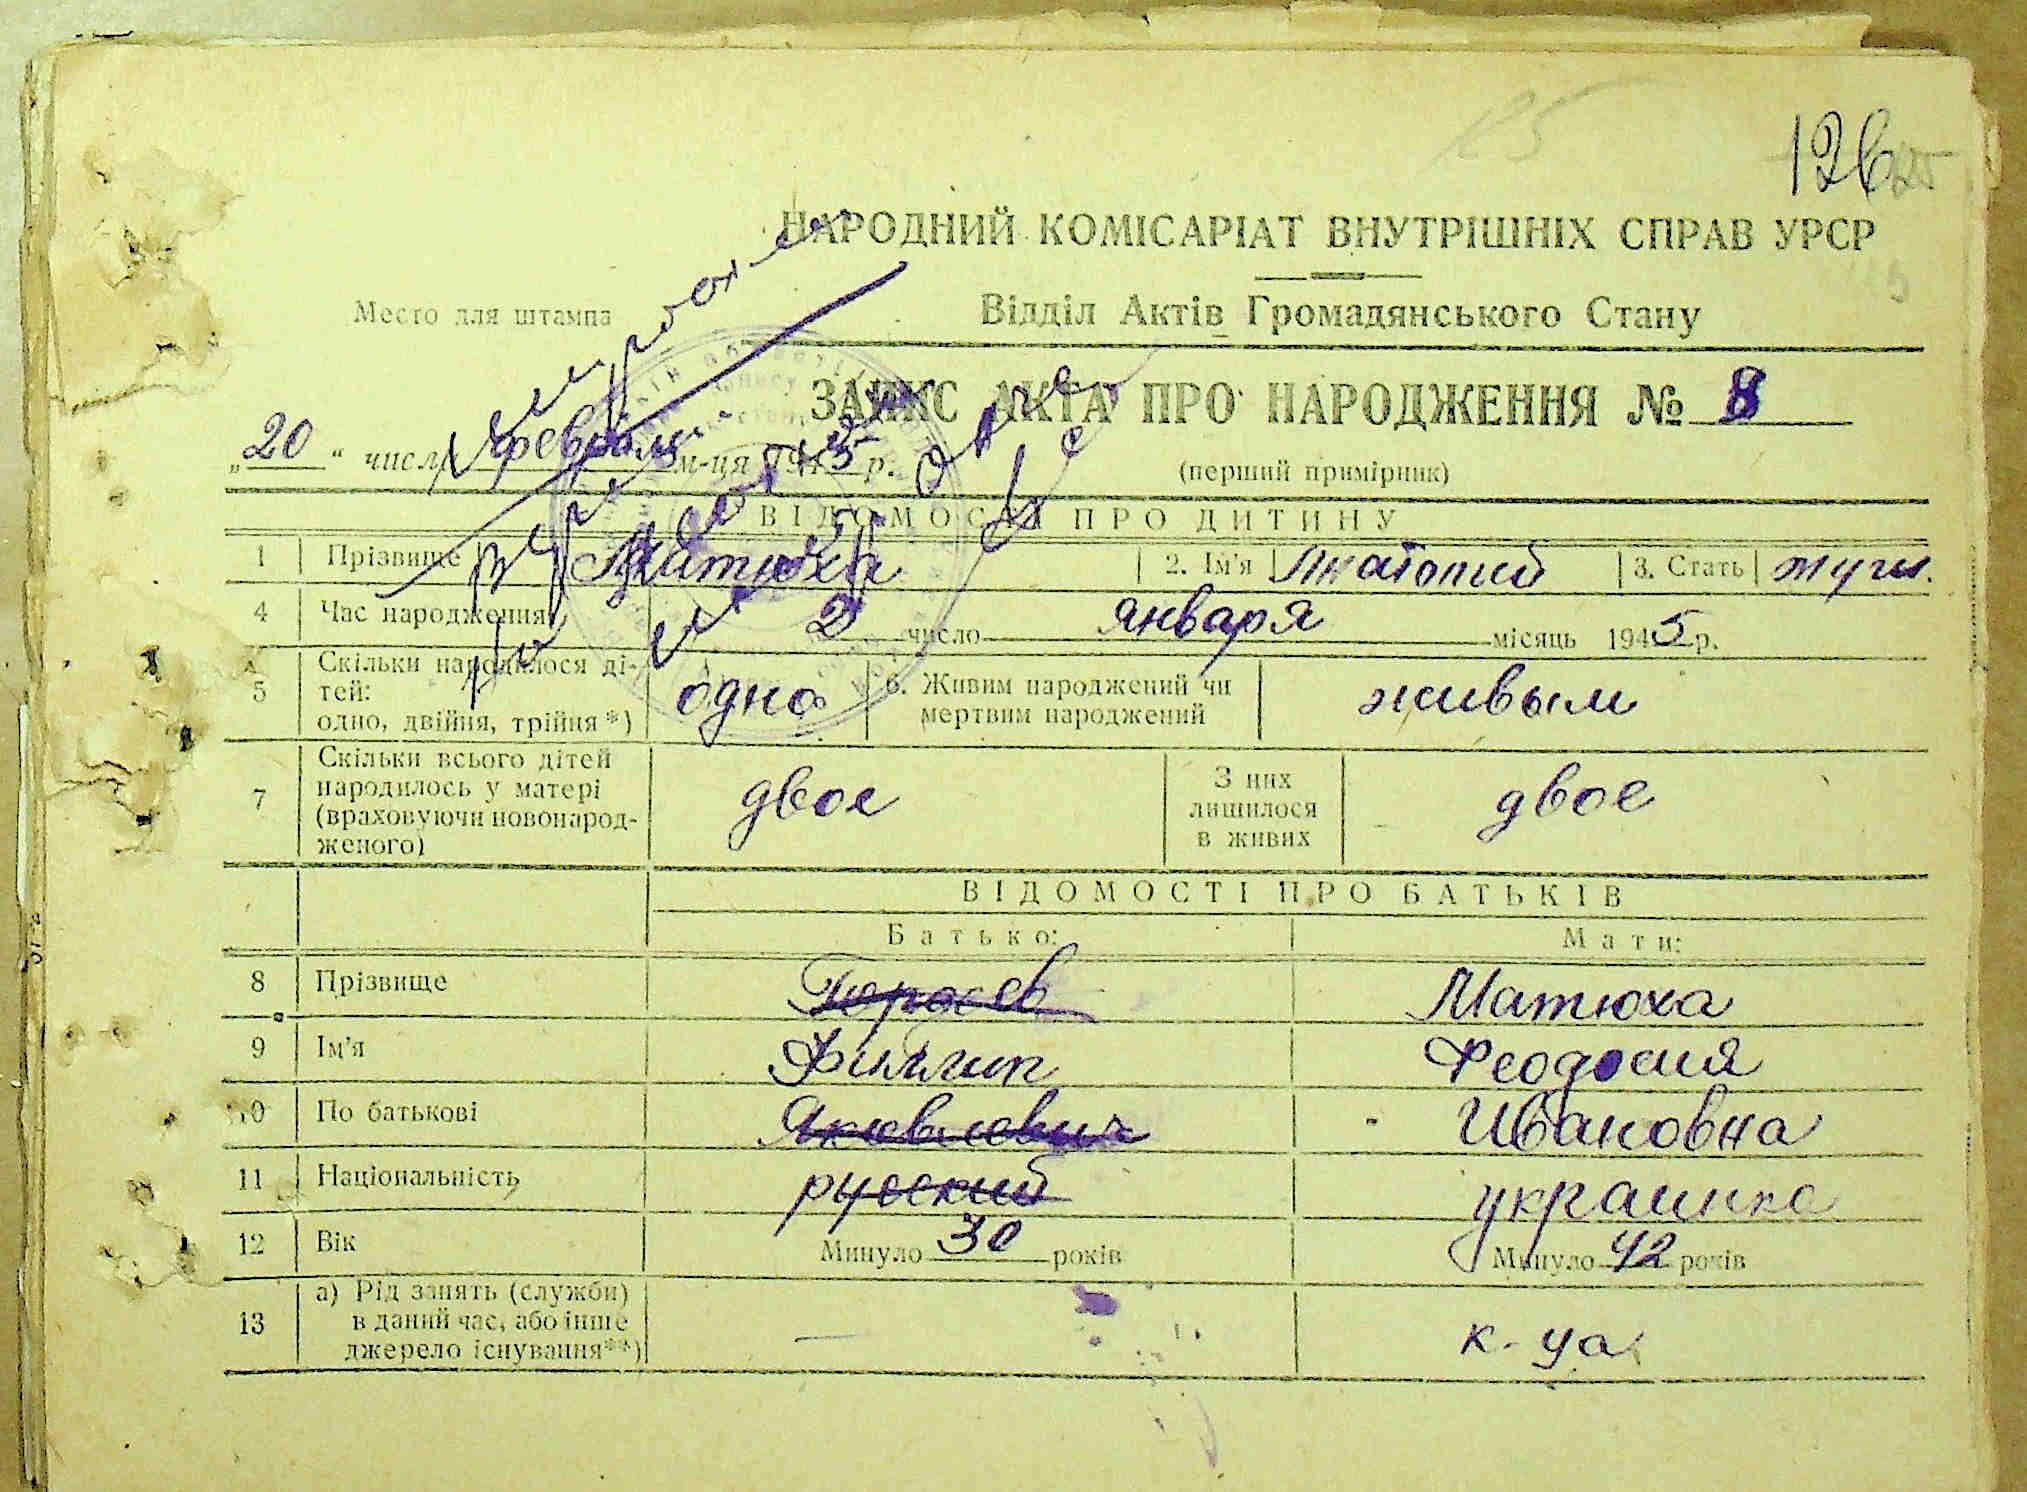 126
НАРОДНИЙ КОМІСАРІАТ ВНУТРІШНІХ СПРАВ УРСР
Место для штампа
Відділ Актів Громадянського Стану
ЗАПИС АКТА ПРО НАРОДЖЕННЯ № 8
„20“ числ февраля м-ця 1945 р.
(перший примірник)
ВІДОМОСТІ ПРО ДИТИНУ
1 Прізвище Матюха 2. Ім'я Анатолий 3. Стать
4 Час народження 2 число января місяць 1945 р.
5 Скільки народилося ді-
тей:
одно, двійня, трійня*) одно 6. Живим народжений чи
мертвим народжений живым
7 Скільки всього дітей
народилось у матері
(враховуючи новонарод-
женого) двое З них
лишилося
в живих двое
ВІДОМОСТІ ПРО БАТЬКІВ
Батько: Мати:
8 Прізвище Матюха
9 Ім'я Филлип Феодосия
10 По батькові Яковлевич Ивановна
11 Національність русский украинка
12 Вік Минуло 30 років Минуло 42 років
13 а) Рід занять (служби)
в даний час, або інше
джерело існування**) — к-ца